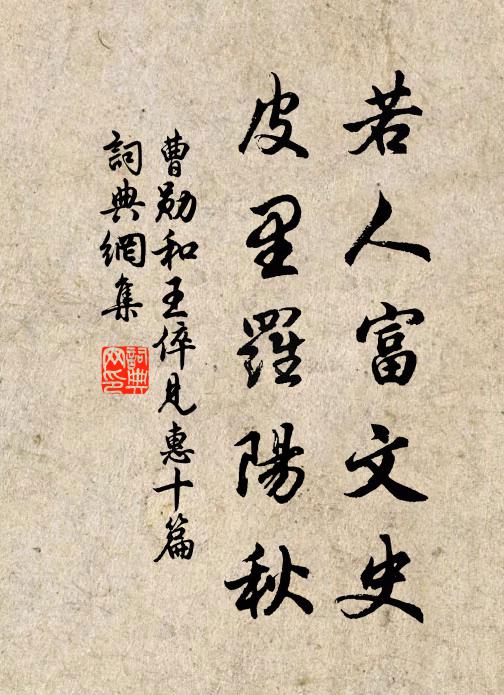 若人富文史
皮里羅陽秋
曹勋和王倅見惠十篇
詞典網集
詞典
网印